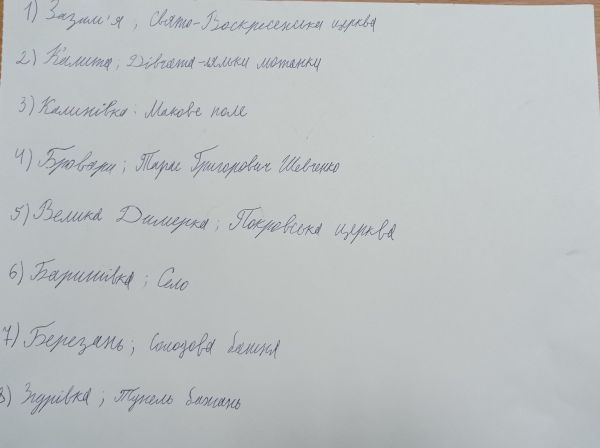 1) Зазим'я ; Свято-Воскресенська церква
2) Калита ; Дівчата-ляльки мотанки
3) Калинівка : Макове поле
4) Бровари ; Тарас Григорович Шевченко
5) Велика Димерка ; Покровська церква
6) Баришівка ; Село
7) Березань ; Силосова башня
8) Згурівка ; Тунель бажань